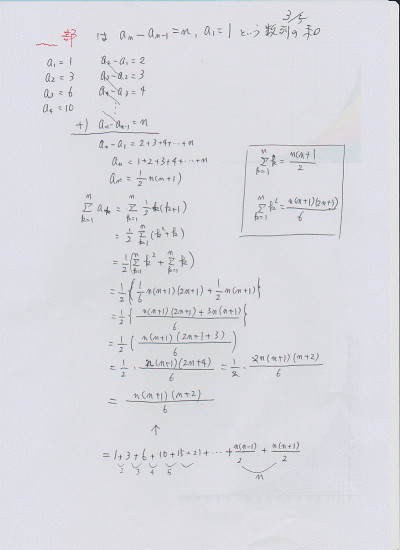 3/5
部 は aₙ - aₙ₋₁ = n, a₁ = 1 という数列の和
a₁ = 1 a₂ - a₁ = 2
a₂ = 3 a₃ - a₂ = 3
a₃ = 6 a₄ - a₃ = 4
a₄ = 10 ⋮
+) aₙ - aₙ₋₁ = n
aₙ - a₁ = 2+3+4+⋯+n
aₙ = 1+2+3+4+⋯+n
aₙ = 1/2 n(n+1)
Σ[k=1→n] k = n(n+1)/2
Σ[k=1→n] k² = n(n+1)(2n+1)/6
Σ[k=1→n] aₖ = Σ[k=1→n] 1/2 k(k+1)
= 1/2 Σ[k=1→n] (k²+k)
= 1/2 (Σ[k=1→n] k² + Σ[k=1→n] k)
= 1/2 { 1/6 n(n+1)(2n+1) + 1/2 n(n+1) }
= 1/2 { n(n+1)(2n+1)+3n(n+1) / 6 }
= 1/2 ( n(n+1)(2n+1+3) / 6 )
= 1/2 · n(n+1)(2n+4) / 6 = 1/2 · 2n(n+1)(n+2) / 6
= n(n+1)(n+2) / 6
↑
= 1+3+6+10+15+21+⋯+ n(n-1)/2 + n(n+1)/2
2 3 4 5 n